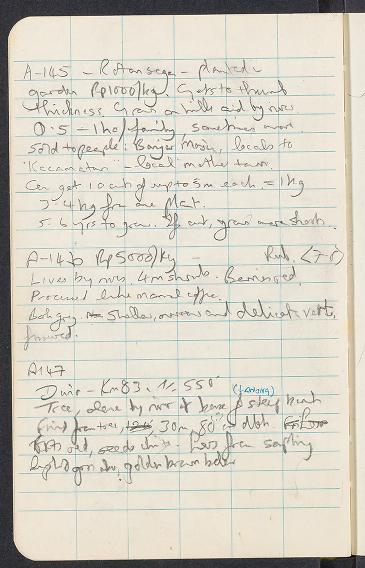 A-145 - Rotan sega - planted in
garden Rp1000/kg. Gets to thumb
thickness. Grows on hills and by river
0.5 - 1 ha/family, sometimes more.
Sold to people: Banjar Masin, locals to
"Kecamatan" - local mother town.
Can get 10 cuts of up to 5m each = 1kg
3-4 kg from one plant.
5-6 yrs to grow. If cut, grows more shoots.
A-146 Rp5000/kg - Rub.
Lives by river. 4m shrub. Berries red.
Processed like normal coffee.
Bok gray. Shallow, narrow and delicate
furrowed.
A147
- Km83. 1/2 550
(LADANG)
Tree, alone by river at base of steep bank
Fruit from tree, 30m, 80 cm dbh.
red, seeds white. Lvs from sapling
light green above, golden brown below